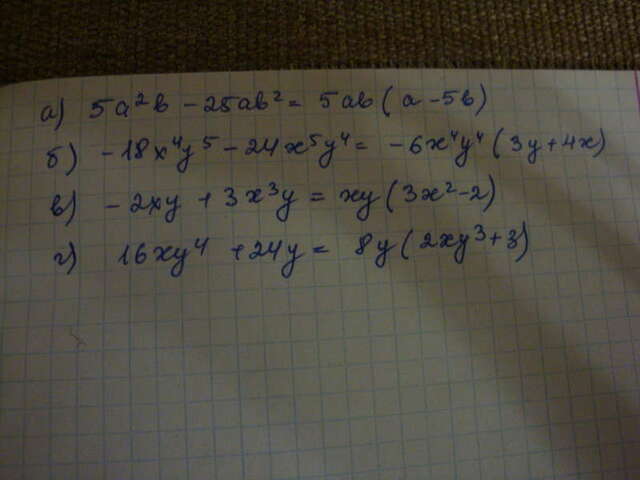 а) 5a²b - 25ab² = 5ab (a - 5b)
б) - 18x⁴y⁵ - 24x⁵y⁴ = - 6x⁴y⁴ (3y + 4x)
в) - 2xy + 3x³y = xy (3x² - 2)
г) 16xy⁴ + 24y = 8y (2xy³ + 3)